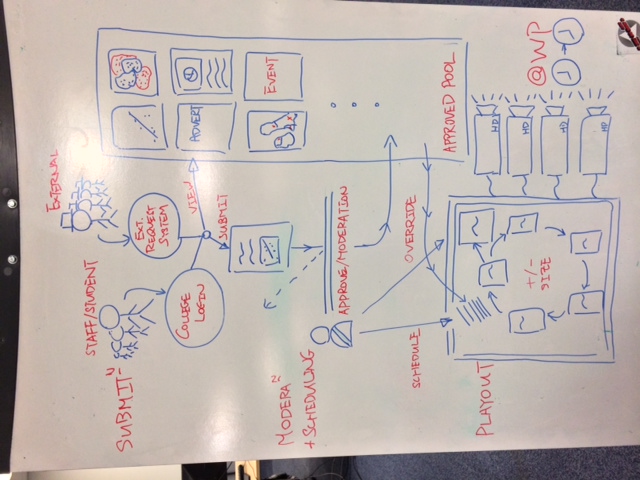 EXTERNAL
STAFF/STUDENT
SUBMIT~N
EXT.
REQUEST
SYSTEM
COLLEGE
LOGIN
VIEW
ADVERT
SUBMIT
EVENT
MODERA~N
+SCHEDULING
APPROVE/MODERATION
SCHEDULE
OVERRIDE
APPROVED POOL
PLAYOUT
+/-
SIZE
HD
HD
HD
HD
@WP